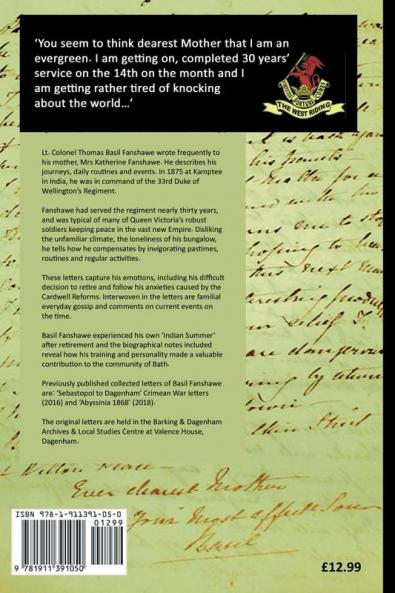 ‘You seem to think dearest Mother that I am an
evergreen. I am getting on, completed 30 years’
service on the 14th on the month and I
am getting rather tired of knocking
about the world…’
THE WEST RIDING
Lt. Colonel Thomas Basil Fanshawe wrote frequently to
his mother, Mrs Katherine Fanshawe. He describes his
journeys, daily routines and events. In 1875 at Kamptee
in India, he was in command of the 33rd Duke of
Wellington’s Regiment.
Fanshawe had served the regiment nearly thirty years,
and was typical of many of Queen Victoria’s robust
soldiers keeping peace in the vast new Empire. Disliking
the unfamiliar climate, the loneliness of his bungalow,
he tells how he compensates by invigorating pastimes,
routines and regular activities.
These letters capture his emotions, including his difficult
decision to retire and follow his anxieties caused by the
Cardwell Reforms. Interwoven in the letters are familial
everyday gossip and comments on current events on
the time.
Basil Fanshawe experienced his own ‘Indian Summer’
after retirement and the biographical notes included
reveal how his training and personality made a valuable
contribution to the community of Bath.
Previously published collected letters of Basil Fanshawe
are: ‘Sebastopol to Dagenham’ Crimean War letters
(2016) and ‘Abyssinia 1868’ (2018).
The original letters are held in the Barking & Dagenham
Archives & Local Studies Centre at Valence House,
Dagenham.
his parents
are dangerous
Ever dearest Mother
Your most affect Son
Basil
ISBN 978-1-911391-05-0
01299
9 781911 391050
£12.99